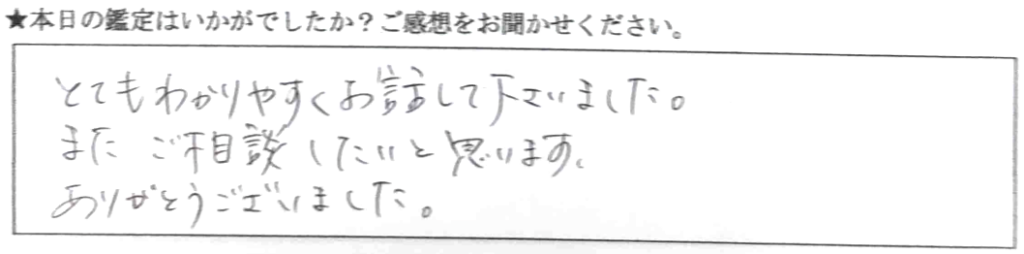 ★本日の鑑定はいかがでしたか？ご感想をお聞かせください。
とてもわかりやすくお話して下さいました。
また ご相談したいと思います。
ありがとうございました。